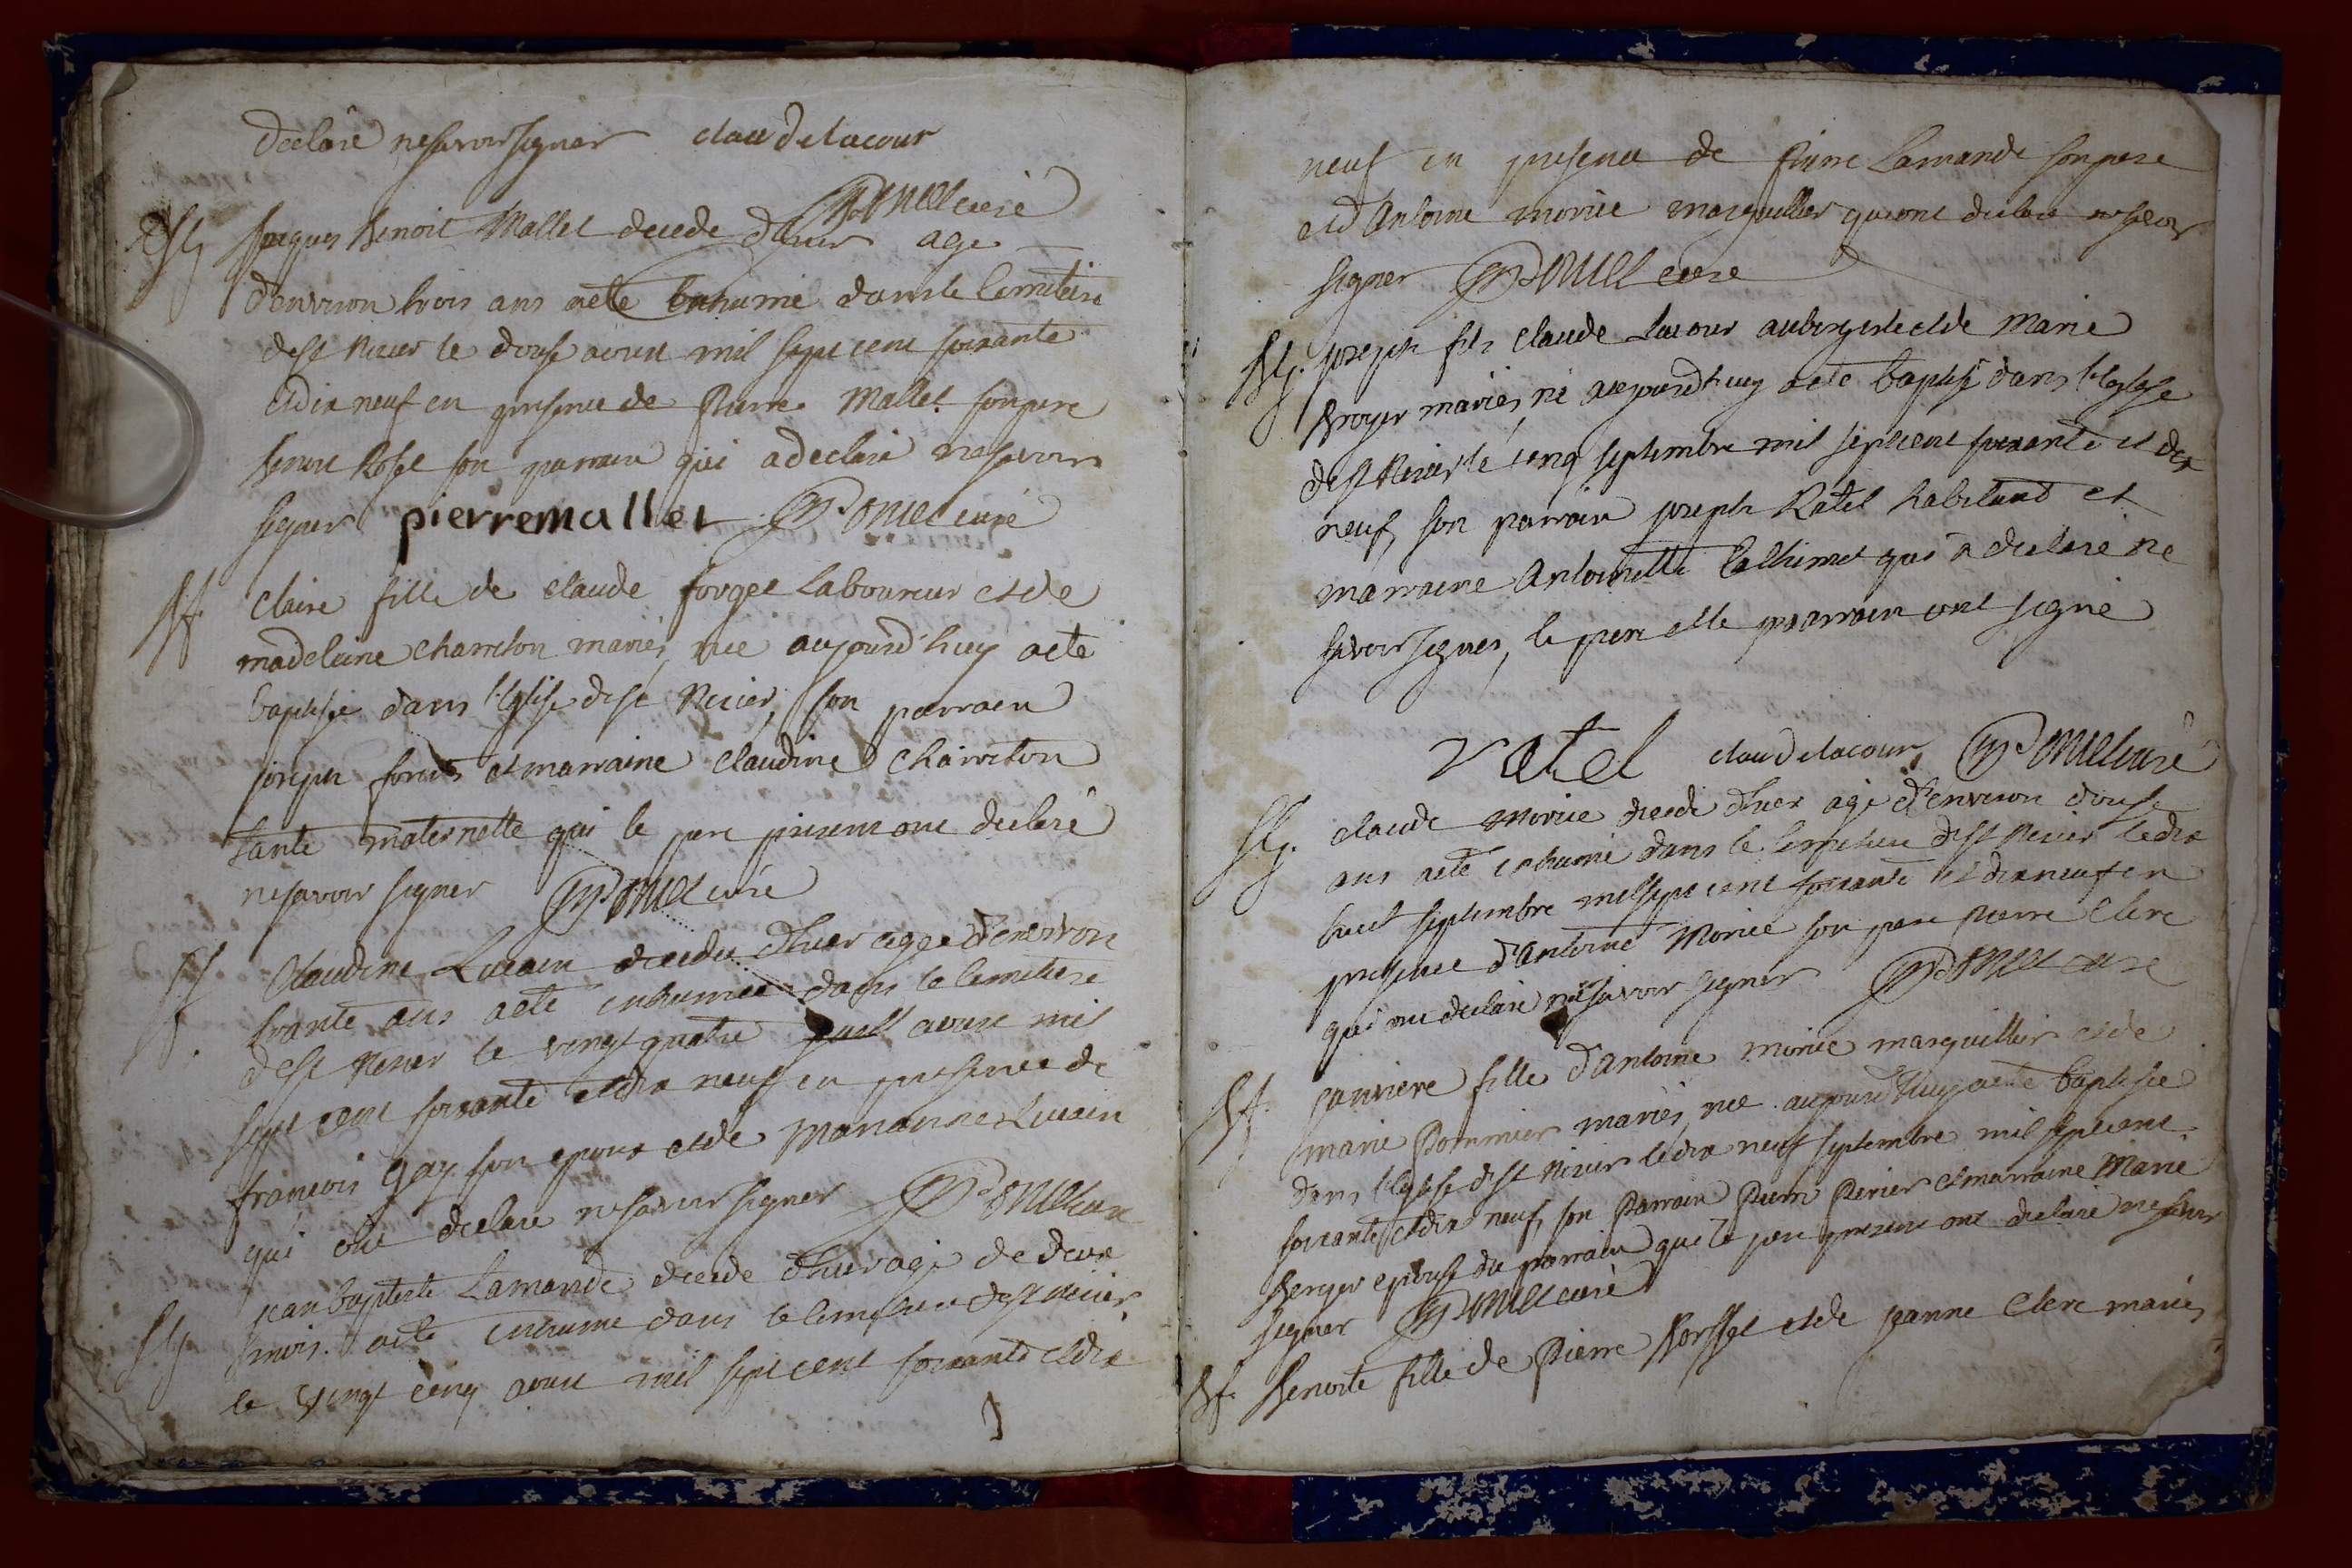 declaré ne savoir signer claudelacour
curé
Sg jacques Benoit Mallet decede d'hier agé
d'environ trois ans a eté inhumé dans le Cemetiere
de st Nizier le douse aoust mil sept cent soixante
et dix neuf en presence de Pierre Mallet son pere
Benoit Rosset son parrain qui a declaré ne savoir
signer pierremallet curé
Bf. Claire fille de claude forget Laboureur et de
madelaine charreton mariés, née aujourd'huy a eté
baptisée dans l'Eglise de st Nizier, son parrain
joseph et marraine claudine charreton
tante maternelle qui le pere present ont declaré
ne savoir signer curé
Sf Claudine Lucain decedée d'hier agée d'environ
trante ans a eté inhumée dans le Cemetiere
de st Nizier le vingt quatre aoust mil
sept cent soixante et dix neuf en presence de
francois gay son epoux et de Lucain
qui ont declaré ne savoir signer curé
Sg. jean baptiste Lamande decede d'hier agé de deux
mois a eté inhumé dans le Cemetiere de st Nizier
le vingt cinq aoust mil sept cent soixante et dix
neuf en presence de Pierre Lamande son pere
et d'Antoine morice marguillier qui ont declaré ne savoir
signer curé
Bg. joseph fils claude Lacour aubergiste et de Marie
Broyer mariés, né aujourd'huy a eté baptisé dans l'Eglise
de st Nizier le cinq septembre mil sept cent soixante et dix
neuf, son parrain joseph Ratel habitant et
marraine Antoinette qui a declaré ne
savoir signer, le pere et le parrain ont signé
ratel claudelacour curé
Sg. claude Morice decede d'hier agé d'environ douse
ans a eté inhumé dans le Cemetiere de st Nizier le dix
huit septembre mil sept cent soixante et dix neuf en
presence d'antoine Morice son pere Pierre Clerc
qui ont declaré ne savoir signer curé
Bf. janviere fille d'antoine morice marguillier et de
marie Pommier mariés, née aujourd'huy a eté baptisée
dans l'Eglise de st Nizier le dix neuf septembre mil sept cent
soixante et dix neuf, son Parrain Pierre Perier et marraine Marie
Berger epouse du parrain qui le pere present ont declaré ne savoir
signer curé
Bf. Benoite fille de Pierre et de jeanne Clerc mariés